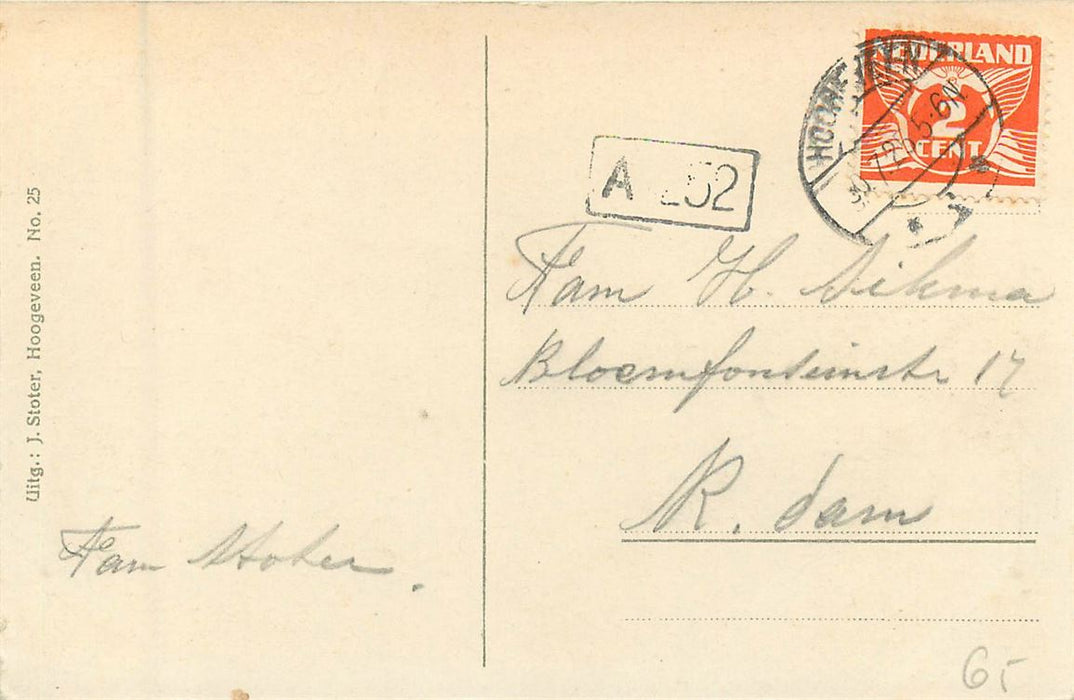 NEDERLAND
2
CENT
A 252
Uitg.: J. Stoter, Hoogeveen. No. 25
Fam H. Sikma
Bloemfonteinstr 17
R. dam
Fam Stoter.
65